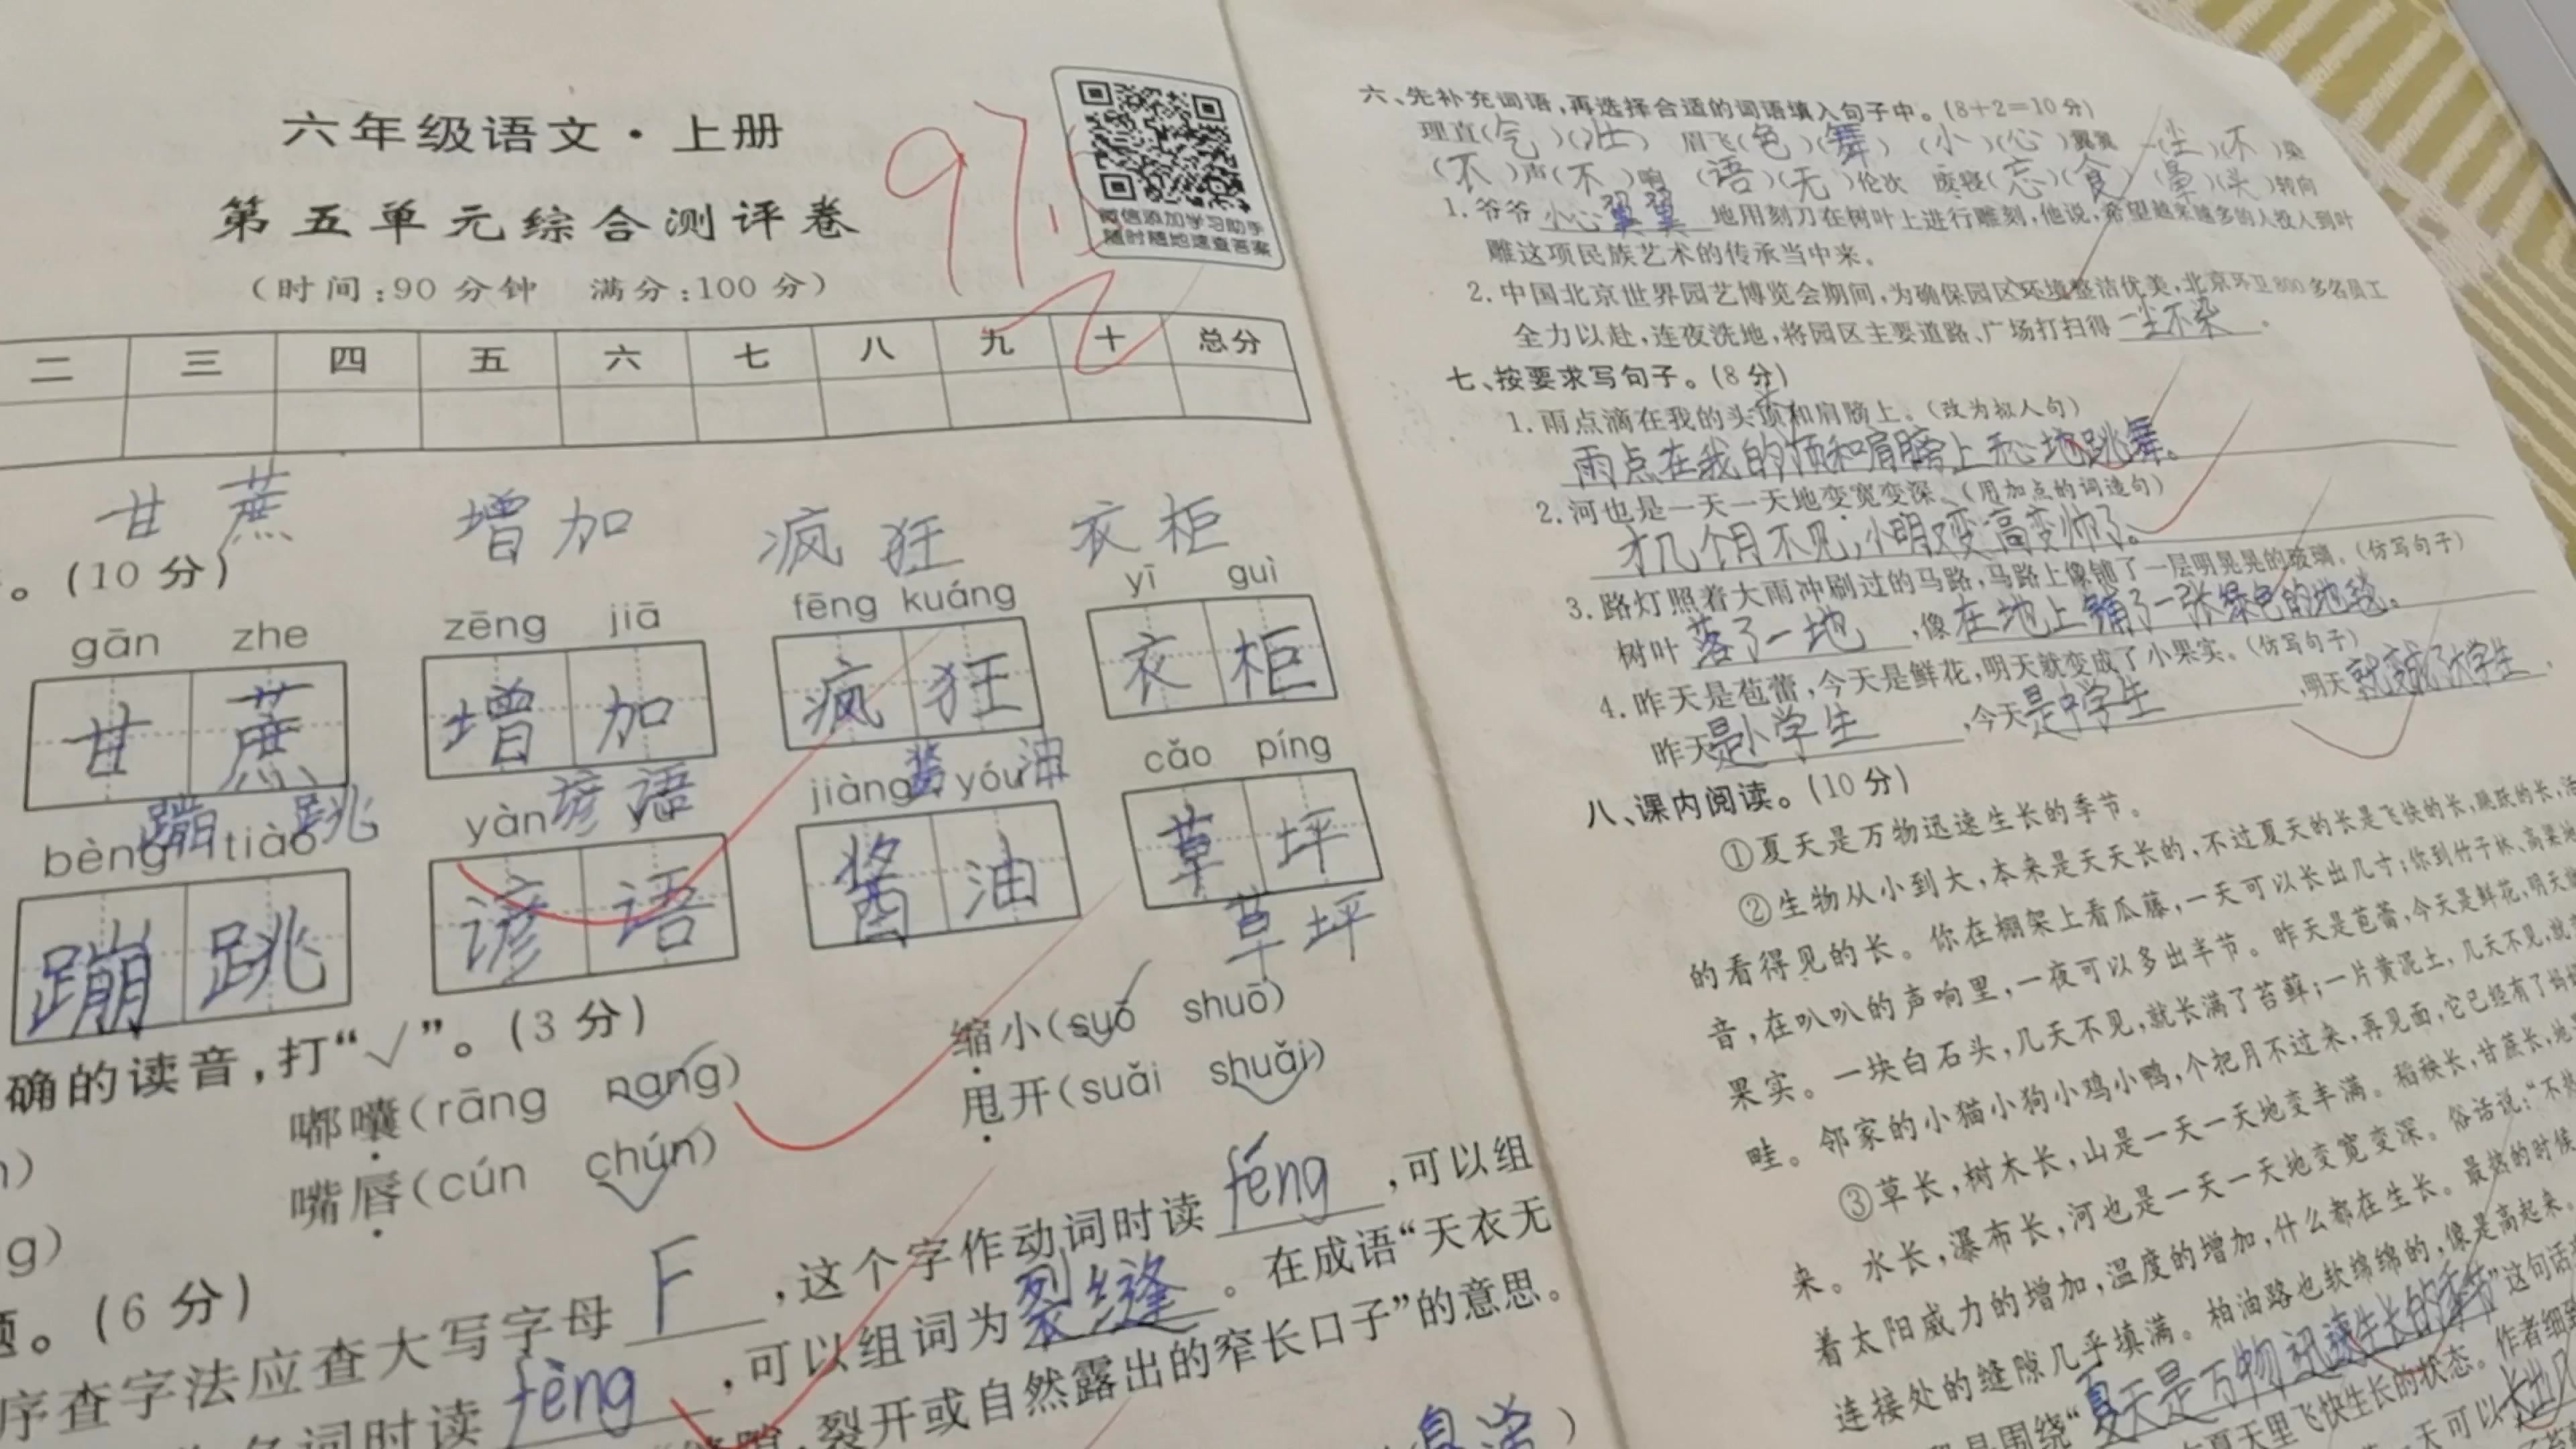 六年级语文·上册
97.5
第五单元综合测评卷
微信添加学习助手
随时随地速查答案
(时间:90分钟 满分:100分)
二 三 四 五 六 七 八 九 十 总分
甘蔗 增加 疯狂 衣柜
。(10分)
gān zhe zēng jiā fēng kuáng yī guì
甘蔗 增加 疯狂 衣柜
蹦跳 谚语 酱油
bèng tiào yàn jiàng yóu cǎo píng
蹦跳 谚语 酱油 草坪
草坪
确的读音,打“√”。(3分)
缩小(suō shuō)
嘟囔(rāng nang)
甩开(suǎi shuǎi)
嘴唇(cún chún)
g)
题。(6分)
序查字法应查大写字母F,这个字作动词时读féng,可以组
词时读fèng,可以组词为裂缝。在成语“天衣无
,裂开或自然露出的窄长口子”的意思。
六、先补充词语,再选择合适的词语填入句子中。(8+2=10分)
理直(气)(壮) 眉飞(色)(舞) (小)(心)翼翼 一(尘)(不)染
(不)声(不)响 (语)(无)伦次 废寝(忘)(食) (晕)(头)转向
1.爷爷小心翼翼地用刻刀在树叶上进行雕刻,他说,希望越来越多的人投入到叶
雕这项民族艺术的传承当中来。
2.中国北京世界园艺博览会期间,为确保园区环境整洁优美,北京环卫800多名员工
全力以赴,连夜洗地,将园区主要道路、广场打扫得一尘不染。
七、按要求写句子。(8分)
1.雨点滴在我的头顶和肩膀上。(改为拟人句)
雨点在我的头顶和肩膀上开心地跳舞。
2.河也是一天一天地变宽变深。(用加点的词造句)
才几个月不见,小明又变高变帅了。
3.路灯照着大雨冲刷过的马路,马路上像铺了一层明晃晃的玻璃。(仿写句子)
树叶落了一地,像在地上铺了一张绿色的地毯。
4.昨天是苞蕾,今天是鲜花,明天就变成了小果实。(仿写句子)
昨天是小学生,今天是中学生,明天就变成了大学生。
八、课内阅读。(10分)
①夏天是万物迅速生长的季节。
②生物从小到大,本来是天天长的,不过夏天的长是飞快的长,跳跃的长,活
的看得见的长。你在棚架上看瓜藤,一天可以长出几寸;你到竹子林、高粱地
音,在叭叭的声响里,一夜可以多出半节。昨天是苞蕾,今天是鲜花,明天就
果实。一块白石头,几天不见,就长满了苔藓;一片黄泥土,几天不见,就
畦。邻家的小猫小狗小鸡小鸭,个把月不过来,再见面,它已经有了妈
③草长,树木长,山是一天一天地变丰满。稻秧长,甘蔗长,地
来。水长,瀑布长,河也是一天一天地变宽变深。俗话说:“不
着太阳威力的增加,温度的增加,什么都在生长。最热的时候
连接处的缝隙几乎填满。柏油路也软绵绵的,像是高起来。
是围绕“夏天是万物迅速生长的季节”这句话
夏天里飞快生长的状态。作者细